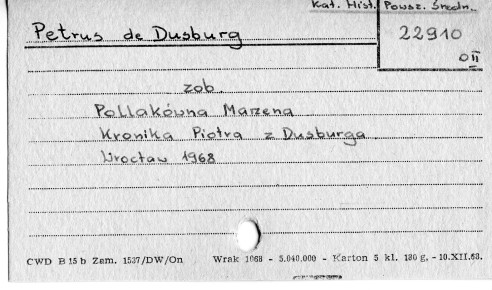 Kat. Hist. Powsz. Średn.
Petrus de Dusburg
22910
OII
zob.
Pollakówna Marzena
Kronika Piotra z Dusburga
Wrocław 1968
CWD B 15 b Zam. 1537/DW/On Wrak 1068 - 5.040.000 - Karton 5 kl. 180 g. - 10.XII.68.